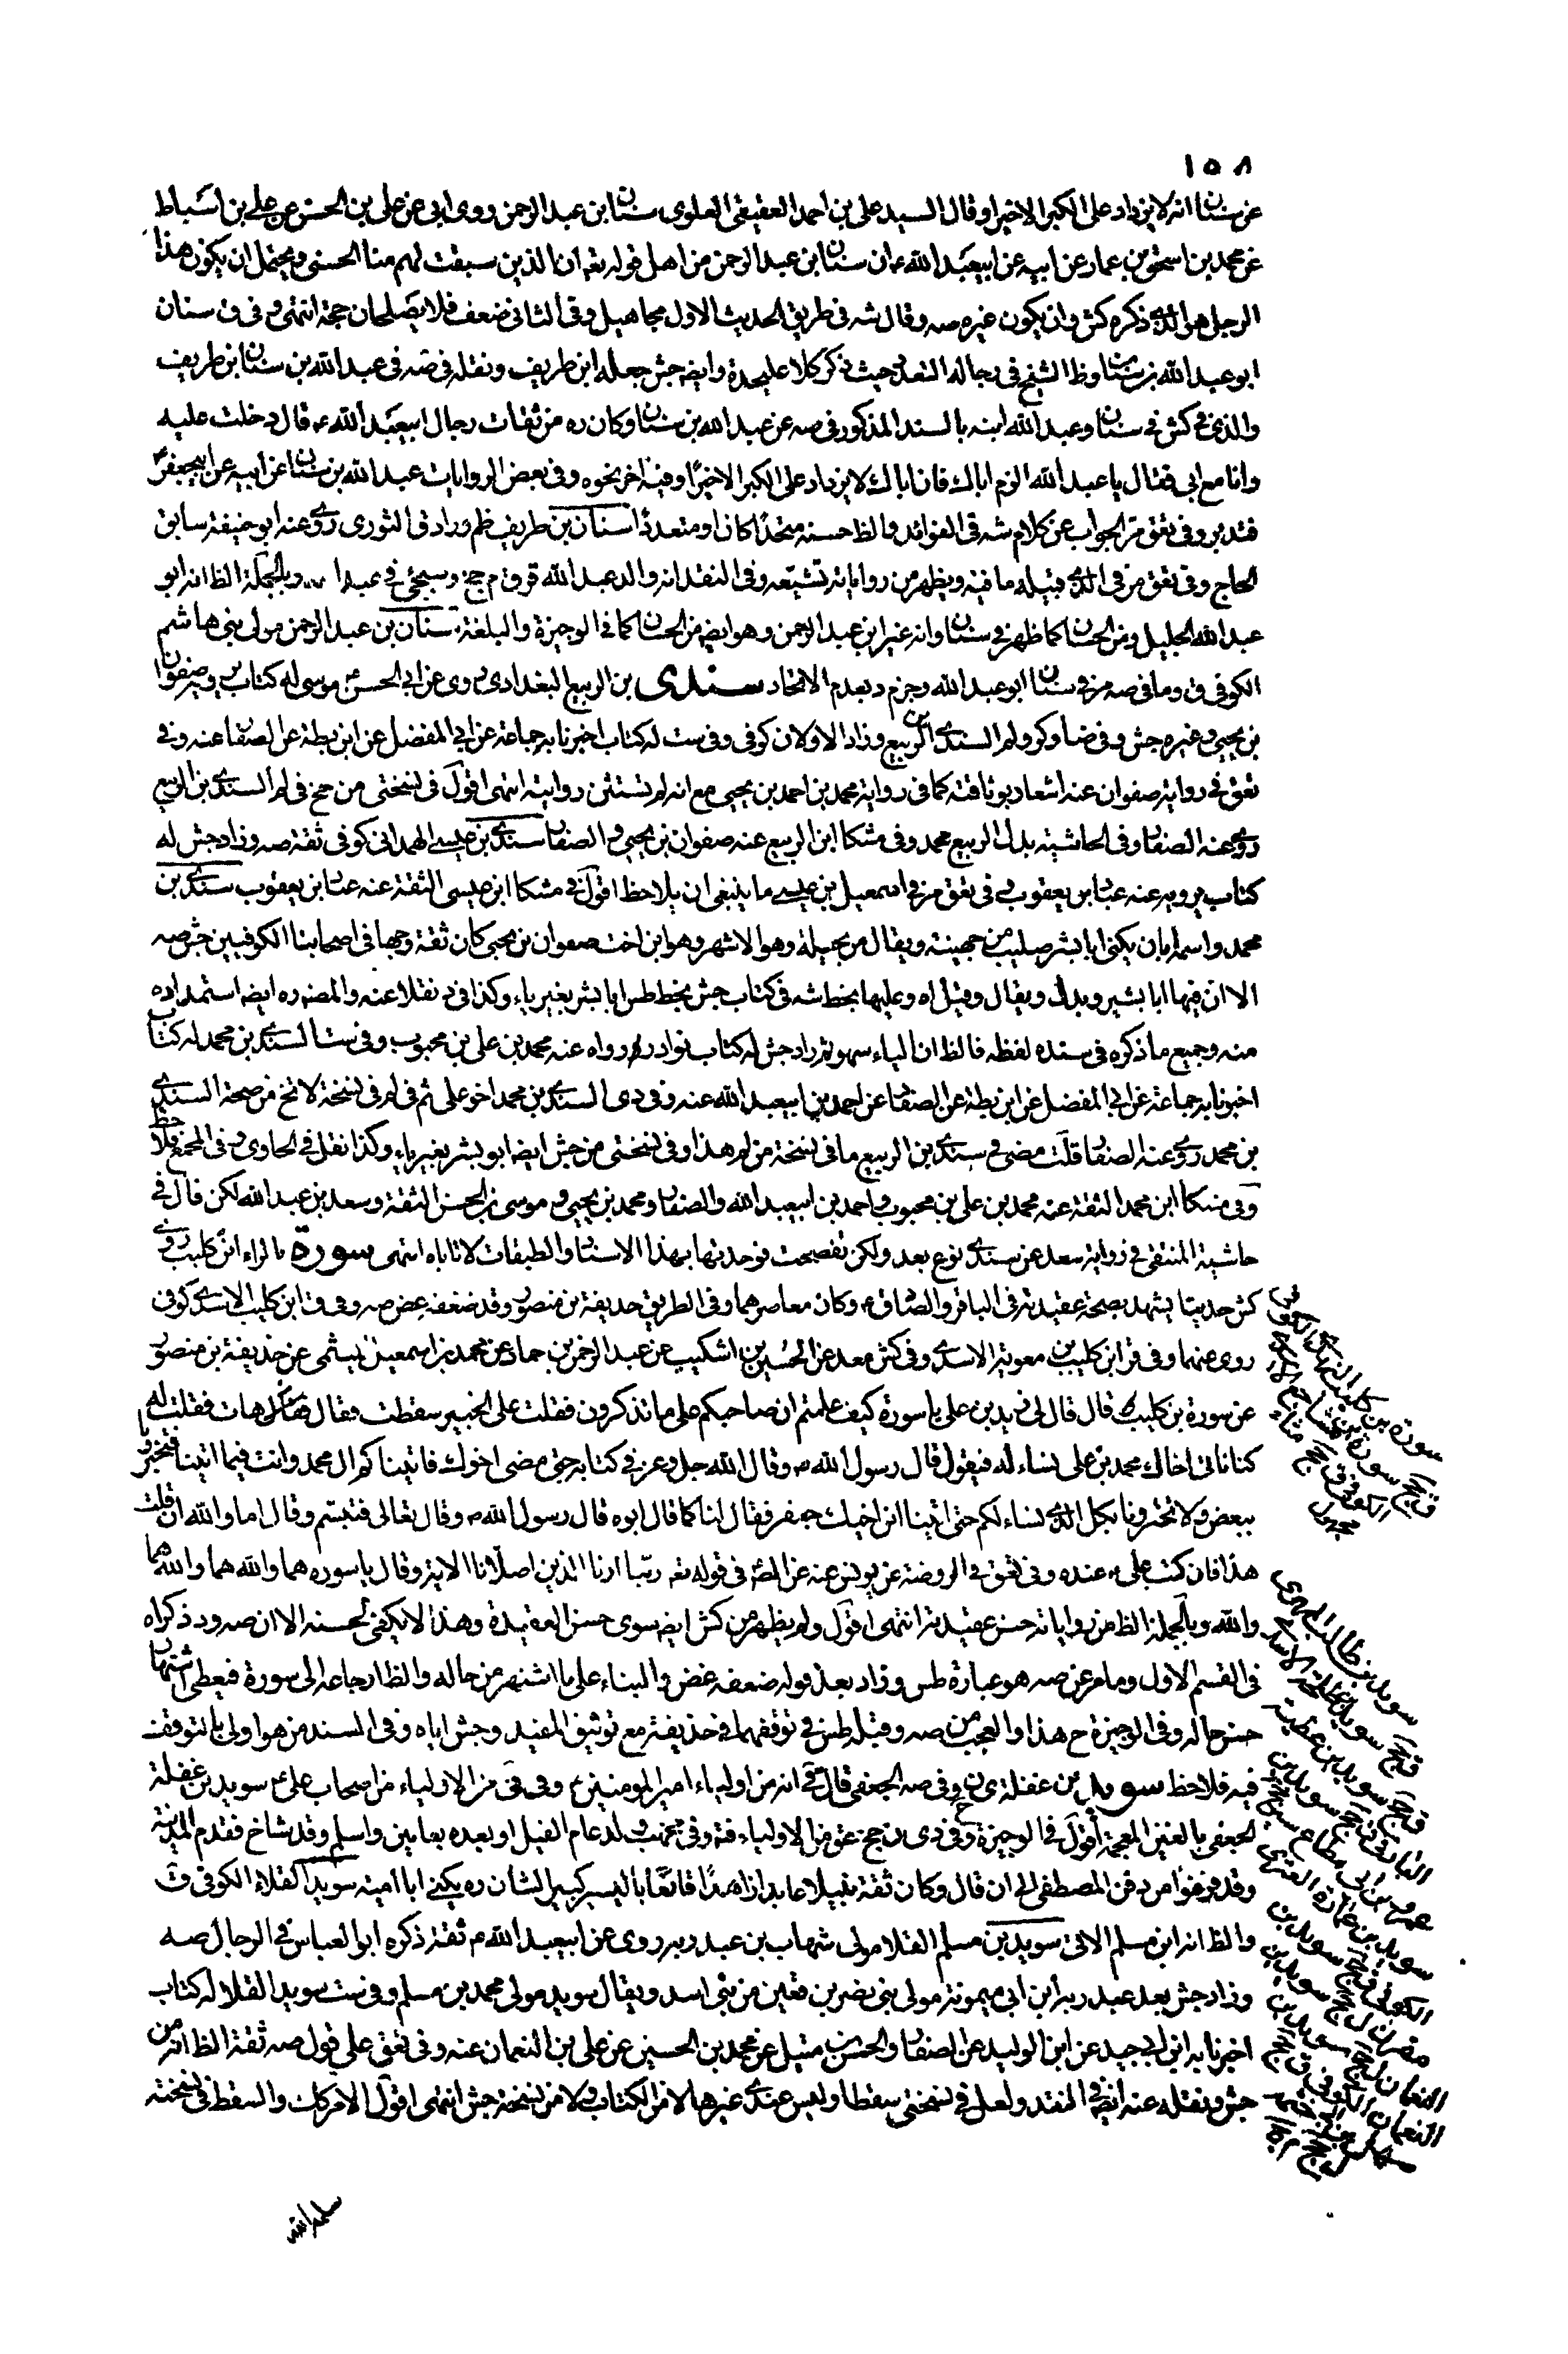 ١٥٨
عن سنان انه لا يزداد على الكبر الا خيرا وقال السيد على بن احمد العقيقى العلوى سنان ابن عبد الرحمن روى ابى عن على بن الحسن عن على بن اسباط
عن محمد بن اسحق بن عمار عن ابيه عن ابيعبد الله ع ان سنان ابن عبد الرحمن من اهل قوله تعه ان الذين سبقت لهم منا الحسنى ويحتمل ان يكون هذا
الرجل هو الذى ذكره كش وان يكون غيره صه وقال شه فى طريق الحديث الاول مجاهيل وفى الثانى ضعف فلا يصلحان حجة انتهى وفى ق سنان
ابو عبد الله بن سنان وظ الشيخ فى رجاله التعدد حيث ذكر كلا عليحدة وايضه جش جعله ابن طريف ونقله فى صه فى عبد الله بن سنان ابن طريف
والذى فى كش فى سنان وعبد الله ابنه بالسند المذكور فى صه عن عبد الله بن سنان وكان ره من ثقات رجال ابيعبد الله ع قال دخلت عليه
وانا مع ابى فقال يا عبد الله الزم اباك فان اباك لا يزداد على الكبر الا خيرا وفيه اخر نحوه وفى بعض الروايات عبد الله بن سنان عن ابيه عن ابيجعفر ع
فتدبر وفى تعق مر الجواب عن كلام شه فى الفوائد والظ حسنه متحدا كان او متعددا سنان بن طريف ظم وزاد ق الثورى روى عنه ابو حنيفة سابق
الحاج وفى تعق مر فى الذى قبيله ما فيه ويظهر من رواياته تشيعه وفى النقد انه والد عبد الله ق وق م جخ وسيجئ فى عبد الله وبالجملة الظ انه ابو
عبد الله الجليل ومن الحسان كما ظهر فى سنان وانه غير ابن عبد الرحمن وهو ايضه من الحسان كما فى الوجيزة والبلغة سنان بن عبد الرحمن مولى بنى هاشم
الكوفى ق وما فى صه مر فى سنان ابو عبد الله وجزم د بعدم الاتحاد سندى بن الربيع البغدادى روى عن ابى الحسن موسى له كتاب يرويه صفوان
بن يحيى وغيره جش وفى ضا وكر ولم السندى بن الربيع وزاد الاولان كوفى وفى ست له كتاب اخبرنا به جماعة عن ابى المفضل عن ابن بطة عن الصفار عنه وفى
تعق فى رواية صفوان عنه اشعار بوثاقته كما فى رواية محمد بن احمد بن يحيى مع انه لم تستثن روايته انتهى اقول فى نسختى من جخ فى لم السندى بن الربيع
روى عنه الصفار وفى الحاشية بدل الربيع محمد وفى مشكا ابن الربيع عنه صفوان بن يحيى والصفار سندى بن عيسى الهمدانى كوفى ثقة صه وزاد جش له
كتاب يرويه عنه عباد بن يعقوب وفى تعق مر فى اسمعيل بن عيسى ما ينبغى ان يلاحظ اقول فى مشكا ابن عيسى الثقة عنه عباد ابن يعقوب سندى بن
محمد واسمه ابان يكنى ابا بشر صليب من جهينة ويقال من بجيلة وهو الاشهر وهو ابن اخت صفوان بن يحيى كان ثقة وجها فى اصحابنا الكوفيين جش صه
الا ان فيها ابا بشير وبدل ويقال وقيل اه وعليها بخط شه فى كتاب جش بخط طس ابا بشر بغير ياء وكذا فى د نقلا عنه والمصنف ره ايضه استمداده
منه وجميع ما ذكره فى سنده لفظه فالظ ان الياء سهو ثم زاد جش له كتاب نوادر رواه عنه محمد بن على بن محبوب وفى ست السندى بن محمد له كتاب
اخبرنا به جماعة عن ابى المفضل عن ابن بطة عن الصفار عن احمد بن ابيعبد الله عنه وفى دى السندى بن محمد اخو على ثم فى لم فى نسخة لا تخ من صحة السندى
بن محمد روى عنه الصفار قلت مضى فى سندى بن الربيع ما فى نسخة من لم هذا وفى نسختى من جش ايضه ابو بشر بغير ياء وكذا نقل فى الحاوى وفى المجمع فلاحظ
وفى مشكا ابن محمد الثقة عنه محمد بن على بن محبوب واحمد بن ابيعبد الله والصفار ومحمد بن يحيى وموسى بن الحسن الثقة وسعد بن عبد الله لكن قال فى
حاشية المنتقى فى رواية سعد عن سندى نوع بعد ولكن تفصحت فوجدتها بهذا الاسناد والطبقات لا تاباه انتهى سورة بالراء ابن كليب روى
كش حديثا يشهد بصحة عقيدته فى الباقر والصادق ع وكان معاصرهما وفى الطريق حذيفة بن منصور وقد ضعفه غض صه وفى ق ابن كليب الاسدى كوفى
روى عنهما وفى قر ابن كليب بن معوية الاسدى وفى كش محمد عن الحسين بن اشكيب عن عبد الرحمن بن حماد عن محمد بن اسمعيل الميثمى عن حذيفة بن منصور
عن سورة بن كليب قال قال لى زيد بن على يا سورة كيف علمتم ان صاحبكم على ما تذكرون فقلت على الخبير سقطت فقال هات فقلت له
كنا ناتى اخاك محمد بن على نساءله فيقول قال رسول الله ص وقال الله جل وعز فى كتابه حتى مضى اخوك فاتيناكم ال محمد وانت فيما اتينا فتخبرنا
ببعض ولا تخبرونا بكل الذى نساءلكم حتى اتينا ابن اخيك جعفر فقال لنا كما قال ابوه قال رسول الله ص وقال تعالى فتبسم وقال اما والله ان قلت
هذا فان كتب على ع عنده وفى تعق فى الروضة عن يونس عنه عن الصه فى قوله تعه ربنا ارنا الذين اضلانا الاية وقال يا سوره هما والله هما والله هما
والله وبالجملة الظ من رواياته حسن عقيدته انتهى اقول ولم يظهر من كش ايضه سوى حسن العقيدة وهذا لا يكفى لحسنه الا ان صه ود ذكراه
فى القسم الاول وما مر عن صه هو عبارة طس وزاد بعد قوله ضعفه غض والبناء على ما اشتهر من حاله والظ ارجاعه الى سورة فيعطى اشتهار
حسن حاله وفى الوجيزة ح هذا والعجب من صه وقبله طس فى توقفهما فى حذيفة مع توثيق المفيد وجش اياه وفى السند من هو اولى بالتوقف
فيه فلاحظ سويد بن غفلة ى ن وفى صه الجعفى قال قى انه من اولياء امير المومنين ع وفى قى من الاولياء من اصحاب على ع سويد بن غفلة
الجعفى بالغين المعجمة اقول فى الوجيزة ح وفى دى ن جخ عق من الاولياء فتد وفى تهذيب ولد عام الفيل او بعده بعامين واسلم وقد شاخ فقدم المدينة
وقد فرغوا من دفن المصطفى الى ان قال وكان ثقة نبيلا عابدا زاهدا قانعا باليسير كبير الشان ره يكنى ابا امية سويد القلاء الكوفى ق
والظ انه ابن مسلم الاتى سويد بن مسلم القلا مولى شهاب بن عبد ربه روى عن ابيعبد الله ع ثقة ذكره ابو العباس فى الرجال صه
وزاد جش بعد عبد ربه ابن ابى ميمونة مولى بنى نضر بن قعين من بنى اسد ويقال سويد مولى محمد بن مسلم وفى ست سويد القلا له كتاب
اخبرنا به ابن ابى جيد عن ابن الوليد عن الصفار والحسن بن متيل عن محمد بن الحسين عن على بن النعمان عنه وفى تعق على قول صه ثقة الظ انه من
جش ونقله عنه ايضه فى النقد ولعل فى نسختى سقطا وليس عندى غيرها لا من الكتاب ولا من نسخة جش انتهى اقول الامر كك والسقط فى نسخته